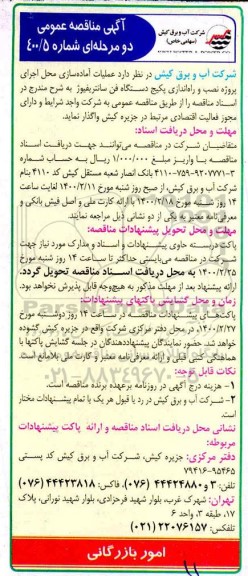 شرکت آب و برق کیش
(سهامی خاص)
آگهی مناقصه عمومی
دو مرحله‌ای شماره ۴۰۰/۵
شرکت آب و برق کیش در نظر دارد عملیات آماده‌سازی محل اجرای
پروژه نصب و راه‌اندازی پکیج دستگاه فن سانتریفیوژ به شرح مندرج در
اسناد مناقصه را از طریق مناقصه عمومی به شرکت واجد شرایط و دارای
مجوز فعالیت اقتصادی مرتبط در جزیره کیش واگذار نماید.
مهلت و محل دریافت اسناد:
متقاضیان شرکت در مناقصه می‌توانند جهت دریافت اسناد
مناقصه با واریز مبلغ ۱/۰۰۰/۰۰۰ ریال به حساب شماره
۴۱۱۰-۷۵۹-۹۲۰۷۷۷۱-۳ بانک انصار شعبه مستقل کیش کد ۴۱۱۰ بنام
شرکت آب و برق کیش، از صبح روز شنبه مورخ ۱۴۰۰/۲/۱۱ لغایت ساعت
۱۴ روز شنبه مورخ ۱۴۰۰/۲/۱۸ با ارائه کارت ملی و اصل فیش بانکی و
معرفی‌نامه معتبر به یکی از دو نشانی ذیل مراجعه نمایند.
مهلت و محل تحویل پیشنهادات مناقصه:
پاکت دربسته حاوی پیشنهادات و اسناد و مدارک مورد نیاز جهت
شرکت در مناقصه می‌بایستی حداکثر تا ساعت ۱۴ روز شنبه مورخ
۱۴۰۰/۲/۲۵ به محل دریافت اسناد مناقصه تحویل گردد.
به ارائه پیشنهاد بعد از مهلت مذکور به هیچ‌وجه قابل پذیرش نخواهد بود.
زمان و محل گشایش پاکتهای پیشنهادات:
پاکت‌های پیشنهادات مناقصه در ساعت ۱۴ روز دوشنبه مورخ
۱۴۰۰/۲/۲۷، در محل دفتر مرکزی شرکت واقع در جزیره کیش گشوده
خواهد شد. حضور نمایندگان پیشنهاددهندگان در جلسه گشایش پاکتها با
هماهنگی حتی قبلی و ارائه معرفی‌نامه معتبر و کارت ملی بلامانع است.
نکات قابل توجه:
۱- هزینه درج آگهی در روزنامه برعهده برنده مناقصه است.
۲- شرکت آب و برق کیش در رد یا قبول هر یک یا تمام پیشنهادات مختار
است
نشانی محل دریافت اسناد مناقصه و ارائه پاکت پیشنهادات
مربوطه:
دفتر مرکزی: جزیره کیش، شرکت آب و برق کیش کد پستی
۷۹۴۱۶-۹۵۴۶۵
تلفن: ۳ و ۴۴۴۲۴۸۸۰ (۰۷۶)، فاکس: ۴۴۴۲۳۸۱۸ (۰۷۶)
تهران: شهرک غرب، بلوار شهید فرحزادی، بلوار شهید نورانی، پلاک
۱۷، طبقه ۳، واحد ۶
تلفکس: ۲۲۰۷۶۱۵۷ (۰۲۱)
امور بازرگانی
۰۲۱-۸۸۳۴۹۶۷۰